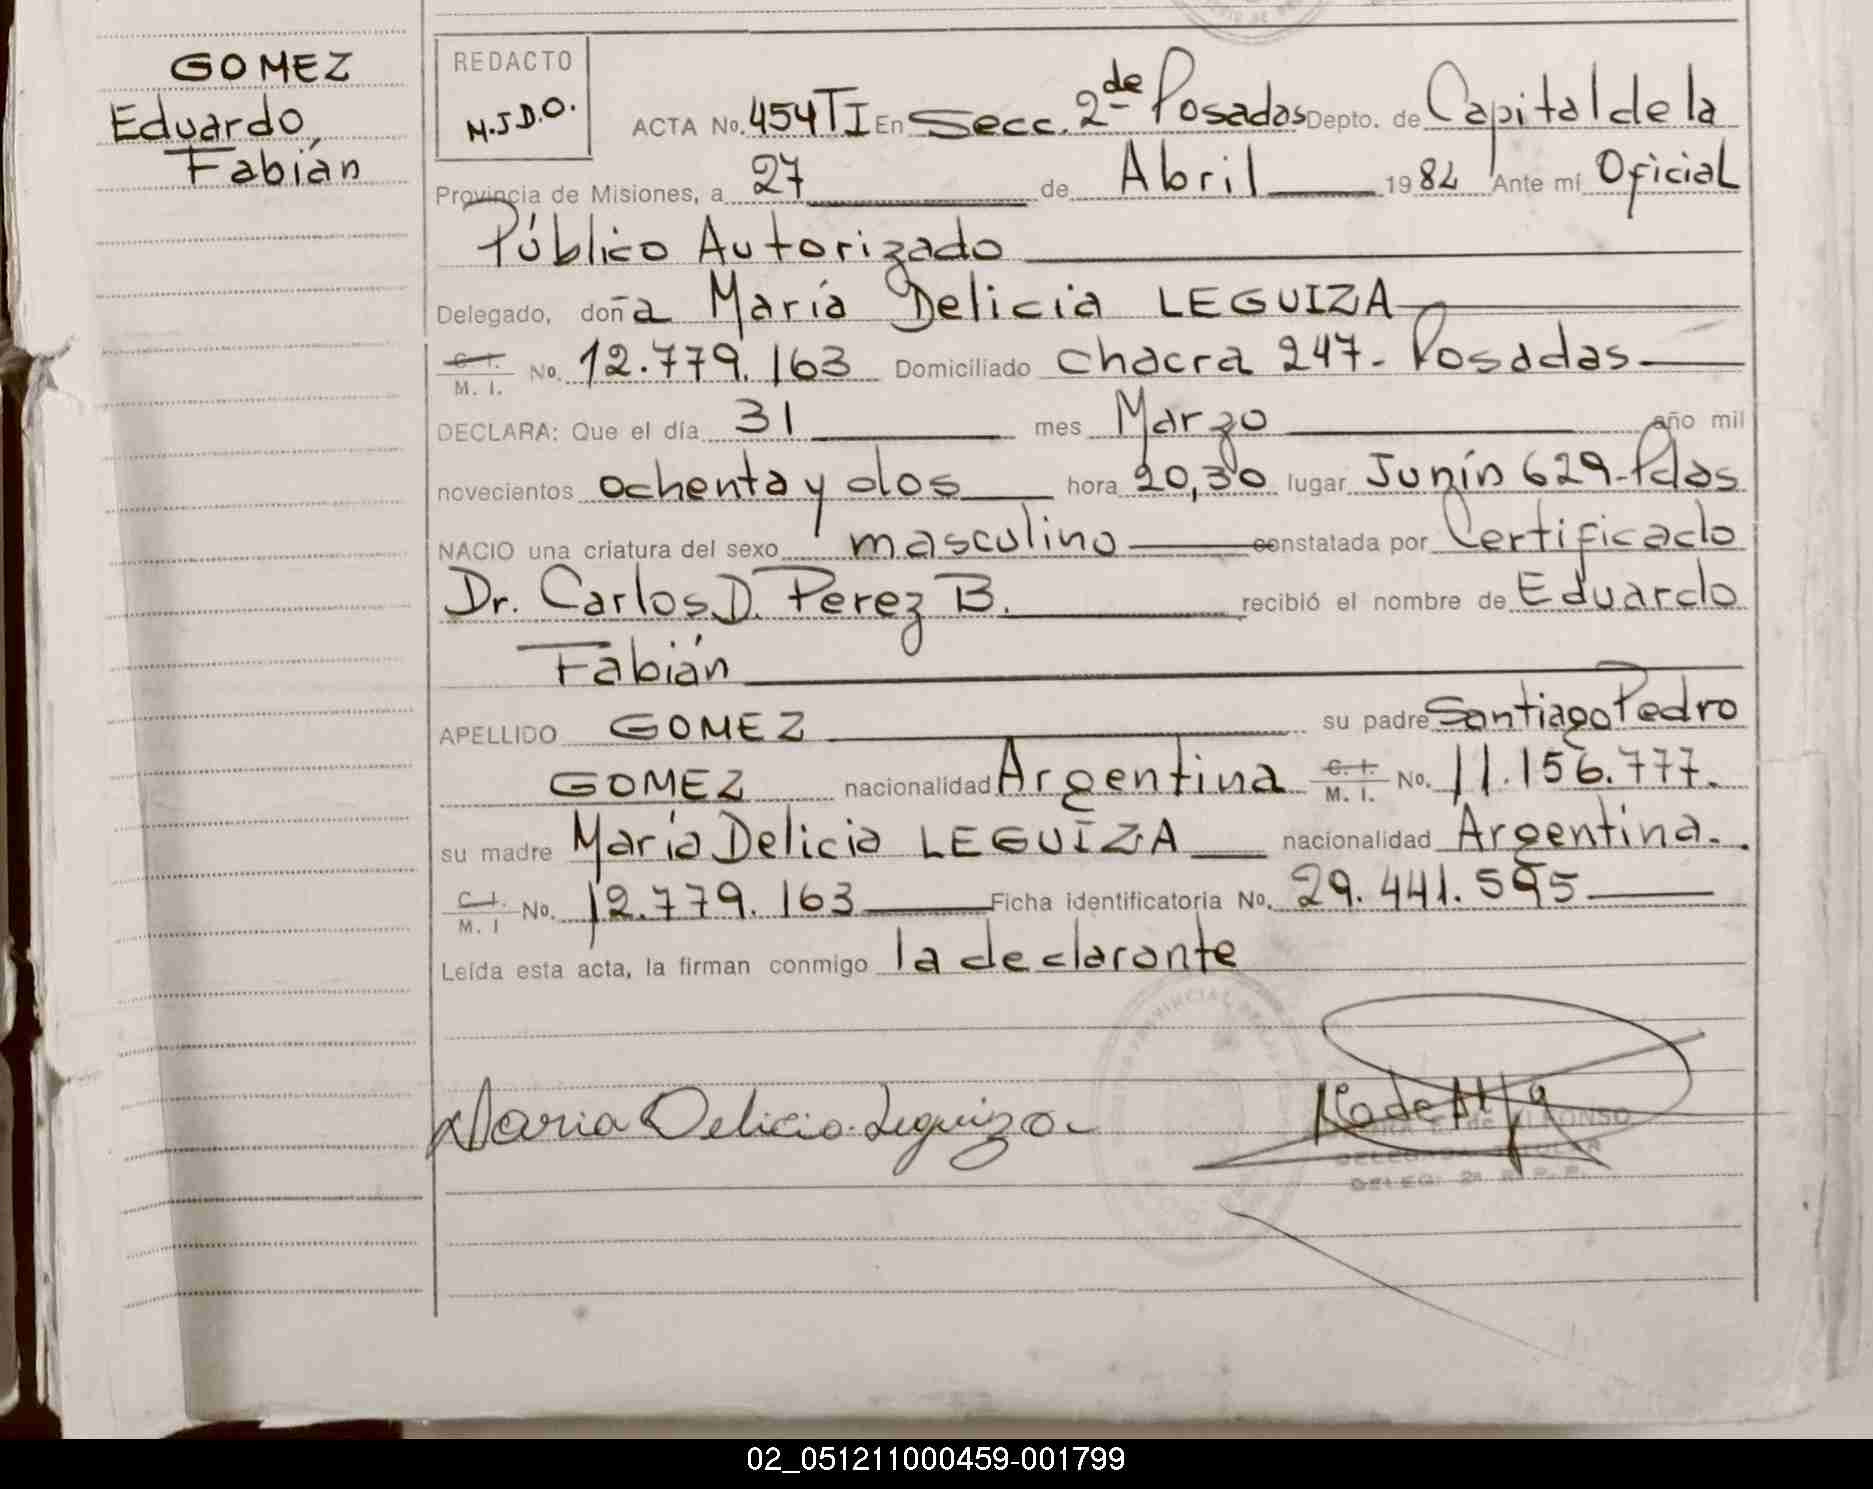 GOMEZ
Eduardo
Fabián
REDACTO
M.J.D.O.
ACTA No. 454 TI En Secc. 2da de Posadas Depto. de Capital de la
Provincia de Misiones, a 27 de Abril 1982 Ante mí Oficial
Público Autorizado
Delegado, doña María Delicia LEGUIZA
C. I. M. I. No. 12.779.163 Domiciliado Chacra 247- Posadas
DECLARA: Que el día 31 mes Marzo año mil
novecientos ochenta y dos hora 20,30 lugar Junín 629-Pdas
NACIO una criatura del sexo masculino constatada por Certificado
Dr. Carlos D. Perez B. recibió el nombre de Eduardo
Fabián
APELLIDO GOMEZ su padre Santiago Pedro
GOMEZ nacionalidad Argentina C. I. M. I. No. 11.156.777.
su madre María Delicia LEGUIZA nacionalidad Argentina.
C. I. M. I No. 12.779.163 Ficha identificatoria No. 29.441.595
Leída esta acta, la firman conmigo la declarante
Maria Delicia Leguiza
de ALFONSO
DELEGADA TITULAR
DELEG. 2a R.P.P.
02_051211000459-001799